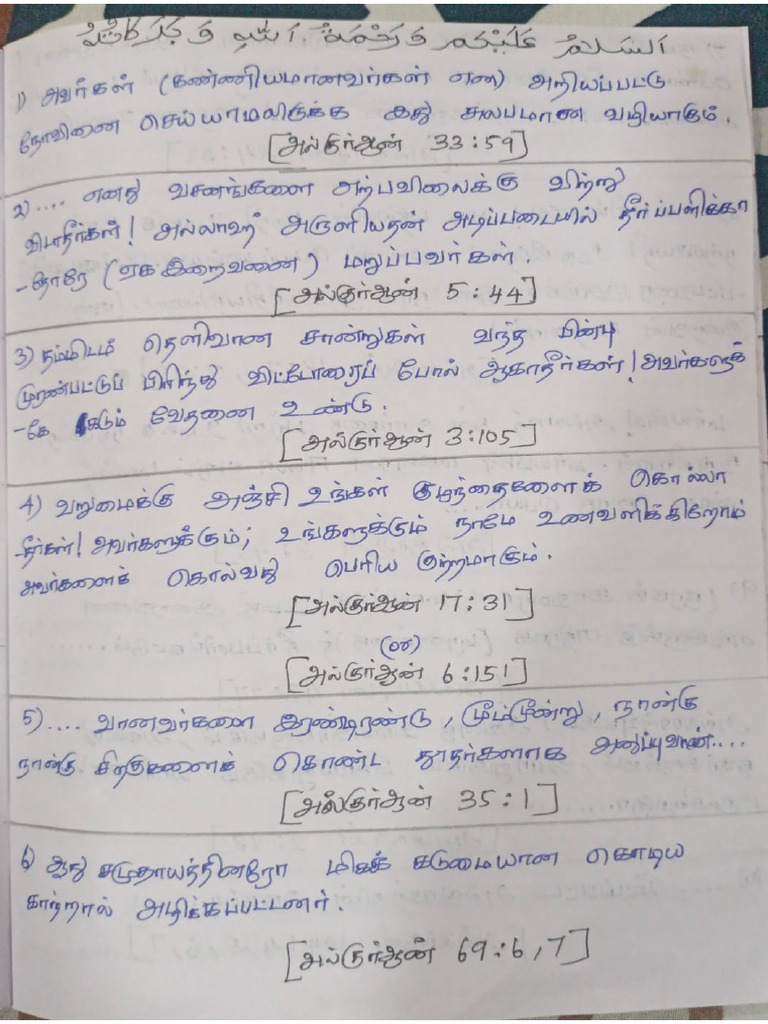 السلام عليكم ورحمة الله وبركاته
1) அவர்கள் (கண்ணியமானவர்கள் என) அறியப்பட்டு
நோவினை செய்யாமலிருக்க இது சுலபமான வழியாகும்.
[அல்குர்ஆன் 33:59]
2).... எனது வசனங்களை அற்பவிலைக்கு விற்று
விடாதீர்கள்! அல்லாஹ் அருளியதன் அடிப்படையில் தீர்ப்பளிக்கா
-தோரே (ஏக இறைவனை) மறுப்பவர்கள்.
[அல்குர்ஆன் 5:44]
3) தம்மிடம் தெளிவான சான்றுகள் வந்த பின்பு
முரண்பட்டுப் பிரிந்து விட்டோரைப் போல் ஆகாதீர்கள்! அவர்களுக்
-கே கடும் வேதனை உண்டு.
[அல்குர்ஆன் 3:105]
4) வறுமைக்கு அஞ்சி உங்கள் குழந்தைகளைக் கொல்லா
-தீர்கள்! அவர்களுக்கும்; உங்களுக்கும் நாமே உணவளிக்கிறோம்
அவர்களைக் கொல்வது பெரிய குற்றமாகும்.
[அல்குர்ஆன் 17:31]
(or)
[அல்குர்ஆன் 6:151]
5).... வானவர்களை இரண்டிரண்டு, மும்மூன்று, நான்கு
நான்கு சிறகுகளைக் கொண்ட தூதர்களாக அனுப்புவான்....
[அல்குர்ஆன் 35:1]
6) ஆது சமுதாயத்தினரோ மிகக் கடுமையான கொடிய
காற்றால் அழிக்கப்பட்டனர்.
[அல்குர்ஆன் 69:6,7]